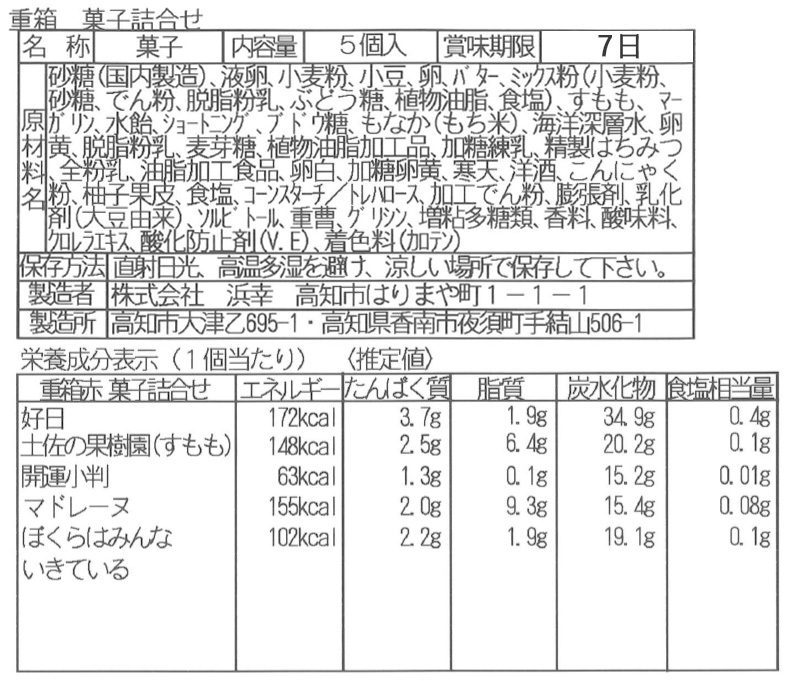 重箱　菓子詰合せ
名 称 菓子 内容量 ５個入 賞味期限 7日
原材料名
砂糖(国内製造)、液卵、小麦粉、小豆、卵、ﾊﾞﾀｰ、ﾐｯｸｽ粉(小麦粉、
砂糖、でん粉、脱脂粉乳、ぶどう糖、植物油脂、食塩)、すもも、ﾏｰ
ｶﾞﾘﾝ、水飴、ｼｮｰﾄﾆﾝｸﾞ、ﾌﾞﾄﾞｳ糖、もなか(もち米)、海洋深層水、卵
黄、脱脂粉乳、麦芽糖、植物油脂加工品、加糖練乳、精製はちみつ
、全粉乳、油脂加工食品、卵白、加糖卵黄、寒天、洋酒、こんにゃく
粉、柚子果皮、食塩、ｺｰﾝｽﾀｰﾁ／ﾄﾚﾊﾛｰｽ、加工でん粉、膨張剤、乳化
剤(大豆由来)、ｿﾙﾋﾞﾄｰﾙ、重曹、ｸﾞﾘｼﾝ、増粘多糖類、香料、酸味料、
ｸﾛﾚﾗｴｷｽ、酸化防止剤(V.E)、着色料(ｶﾛﾃﾝ)
保存方法 直射日光、高温多湿を避け、涼しい場所で保存して下さい。
製造者 株式会社　浜幸　高知市はりまや町１－１－１
製造所 高知市大津乙695-1・高知県香南市夜須町手結山506-1
栄養成分表示（１個当たり）　〈推定値〉
重箱赤 菓子詰合せ エネルギー たんぱく質 脂質 炭水化物 食塩相当量
好日 172kcal 3.7g 1.9g 34.9g 0.4g
土佐の果樹園(すもも) 148kcal 2.5g 6.4g 20.2g 0.1g
開運小判 63kcal 1.3g 0.1g 15.2g 0.01g
マドレーヌ 155kcal 2.0g 9.3g 15.4g 0.08g
ぼくらはみんな 102kcal 2.2g 1.9g 19.1g 0.1g
いきている